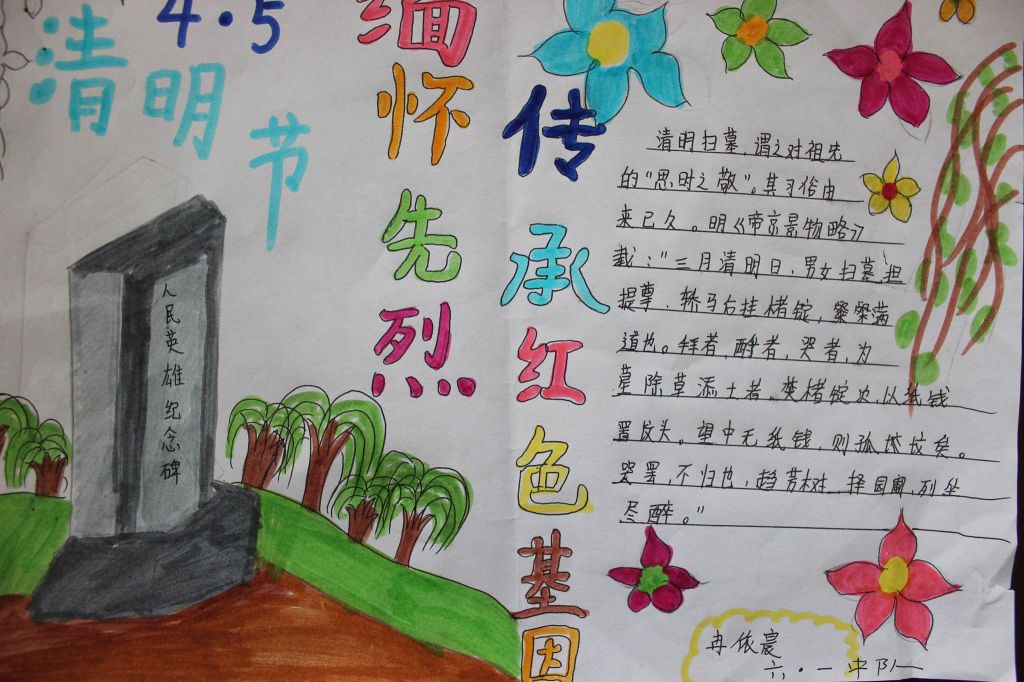 4·5
清明节
缅怀先烈
传承红色基因
人民英雄纪念碑
清明扫墓，谓之对祖先
的“思时之敬”。其习俗由
来已久。明《帝京景物略》
载：“三月清明日，男女扫墓，担
提尊，轿马后挂楮锭，粲粲满
道也。拜者，酹者，哭者，为
墓除草添土者，焚楮锭次，以纸钱
置坟头。望中无纸钱，则孤坟矣。
哭罢，不归也，趋芳树，择园圃，列坐
尽醉。”
冉依宸
六·一中队